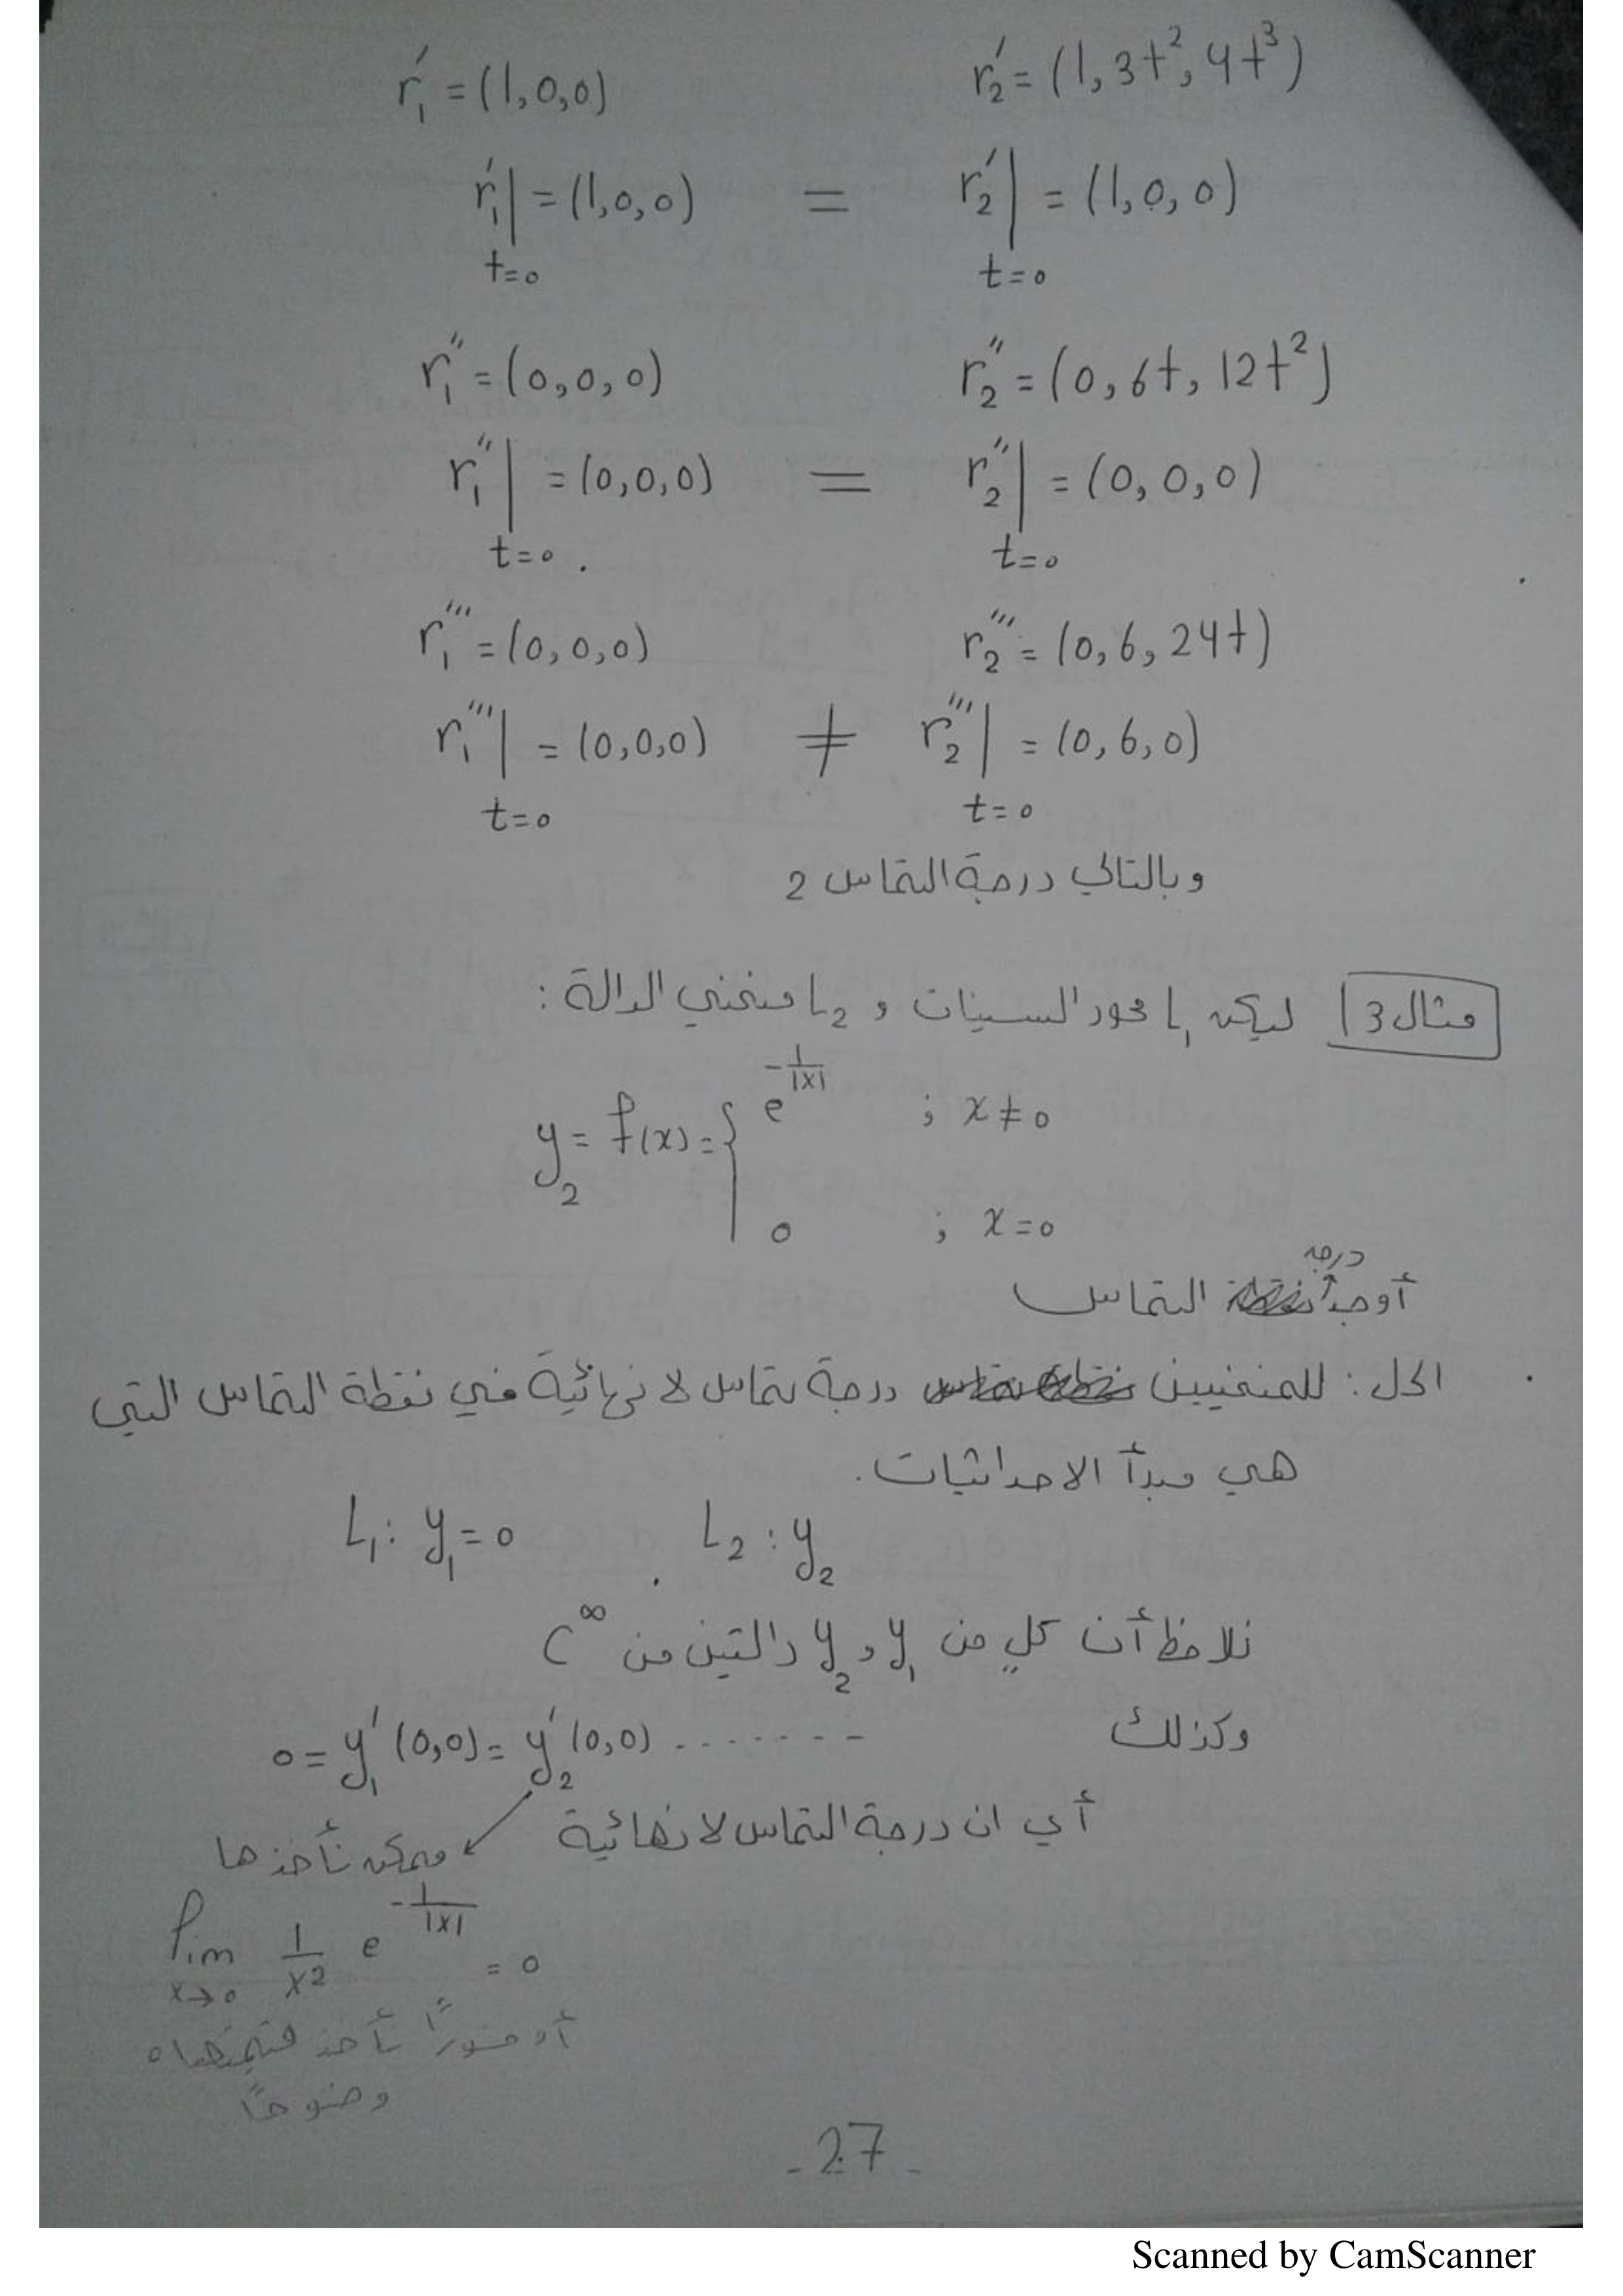 r₁′ = (1,0,0) r₂′ = (1, 3t², 4t³)
r₁′|t=0 = (1,0,0) = r₂′|t=0 = (1,0,0)
r₁″ = (0,0,0) r₂″ = (0, 6t, 12t²)
r₁″|t=0 = (0,0,0) = r₂″|t=0 = (0,0,0)
r₁‴ = (0,0,0) r₂‴ = (0, 6, 24t)
r₁‴|t=0 = (0,0,0) ≠ r₂‴|t=0 = (0, 6, 0)
وبالتالي درجة التماس 2
مثال 3 ليكن L₁ محور السينات و L₂ منحني الدالة :
y₂ = f(x) = { e^(-1/|x|) ; x ≠ 0
0 ; x = 0
أوجد درجة التماس
الحل : للمنحنيين درجة تماس لا نهائية في نقطة التماس التي
هي مبدأ الاحداثيات .
L₁ : y₁ = 0 L₂ : y₂
نلاحظ أن كلٍ من y₁ و y₂ دالتين من C^∞
وكذلك 0 = y₁′(0,0) = y₂′(0,0) .......
أي ان درجة التماس لا نهائية
ممكن نأخذها
lim x→0 1/x² e^(-1/|x|) = 0
أو فوراً نأخذ
وضوحاً
- 27 -
Scanned by CamScanner